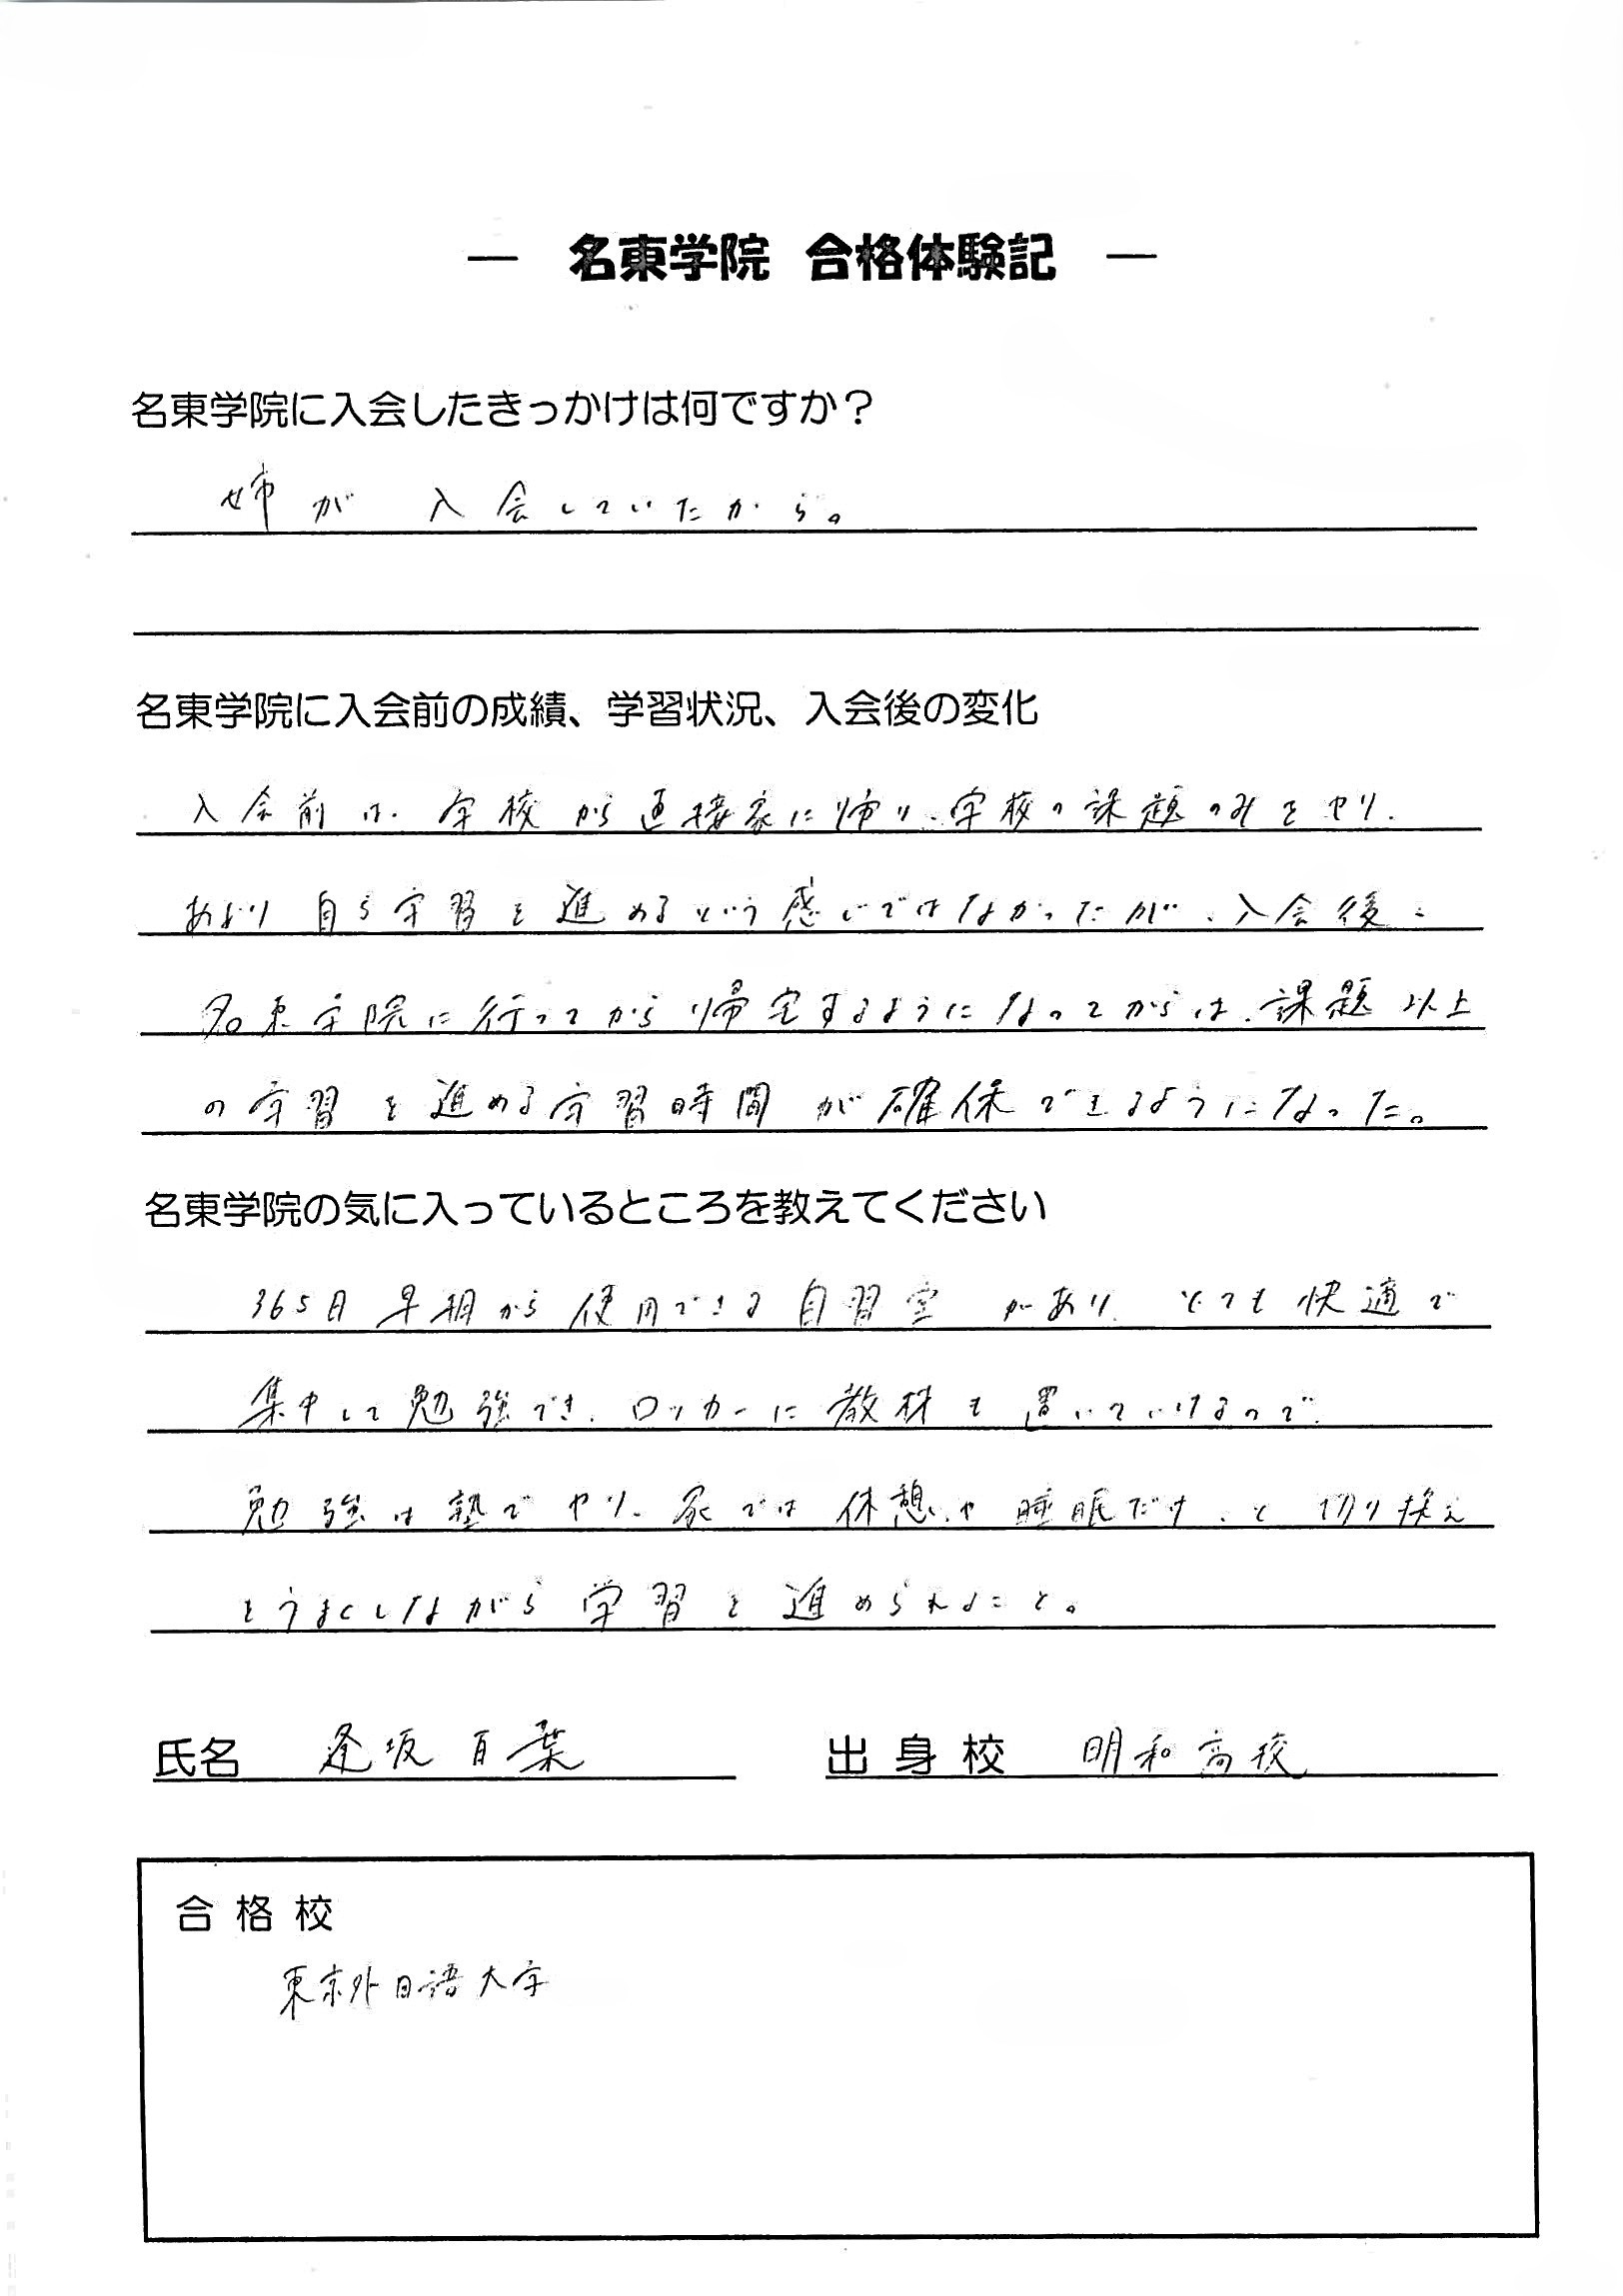 ― 名東学院 合格体験記 ―
名東学院に入会したきっかけは何ですか？
姉が入会していたから。
名東学院に入会前の成績、学習状況、入会後の変化
入会前は、学校から直接家に帰り、学校の課題のみをやり、
あまり自ら学習を進めるという感じではなかったが、入会後、
名東学院に行ってから帰宅するようになってからは、課題以上
の学習を進める学習時間が確保できるようになった。
名東学院の気に入っているところを教えてください
365日早朝から使用できる自習室があり、とても快適で
集中して勉強でき、ロッカーに教材も置いていけるので、
勉強は塾でやり、家では休憩や睡眠だけ、と切り換え
をうまくしながら学習を進められること。
氏名 逢坂百葉 出身校 明和高校
合格校
東京外国語大学